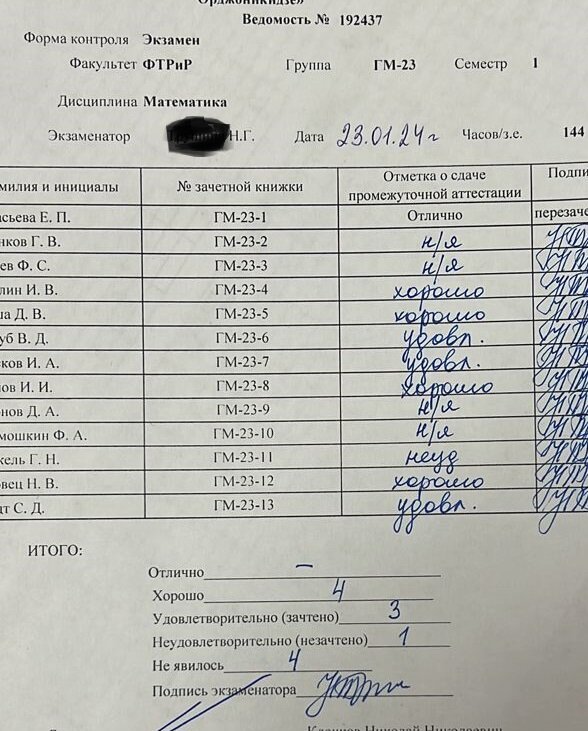 Орджоникидзе»
Ведомость № 192437
Форма контроля Экзамен
Факультет ФТРиР Группа ГМ-23 Семестр 1
Дисциплина Математика
Экзаменатор Н.Г. Дата 23.01.24 г Часов/з.е. 144
милия и инициалы № зачетной книжки Отметка о сдаче промежуточной аттестации Подпи
сьева Е. П. ГМ-23-1 Отлично перезаче
нков Г. В. ГМ-23-2 н/я
ев Ф. С. ГМ-23-3 н/я
лин И. В. ГМ-23-4 хорошо
ша Д. В. ГМ-23-5 хорошо
уб В. Д. ГМ-23-6 удовл.
ков И. А. ГМ-23-7 удовл.
ов И. И. ГМ-23-8 хорошо
нов Д. А. ГМ-23-9 н/я
мошкин Ф. А. ГМ-23-10 н/я
кель Г. Н. ГМ-23-11 неуд
овец Н. В. ГМ-23-12 хорошо
дт С. Д. ГМ-23-13 удовл.
ИТОГО:
Отлично –
Хорошо 4
Удовлетворительно (зачтено) 3
Неудовлетворительно (незачтено) 1
Не явилось 4
Подпись экзаменатора
Николай Николаевич